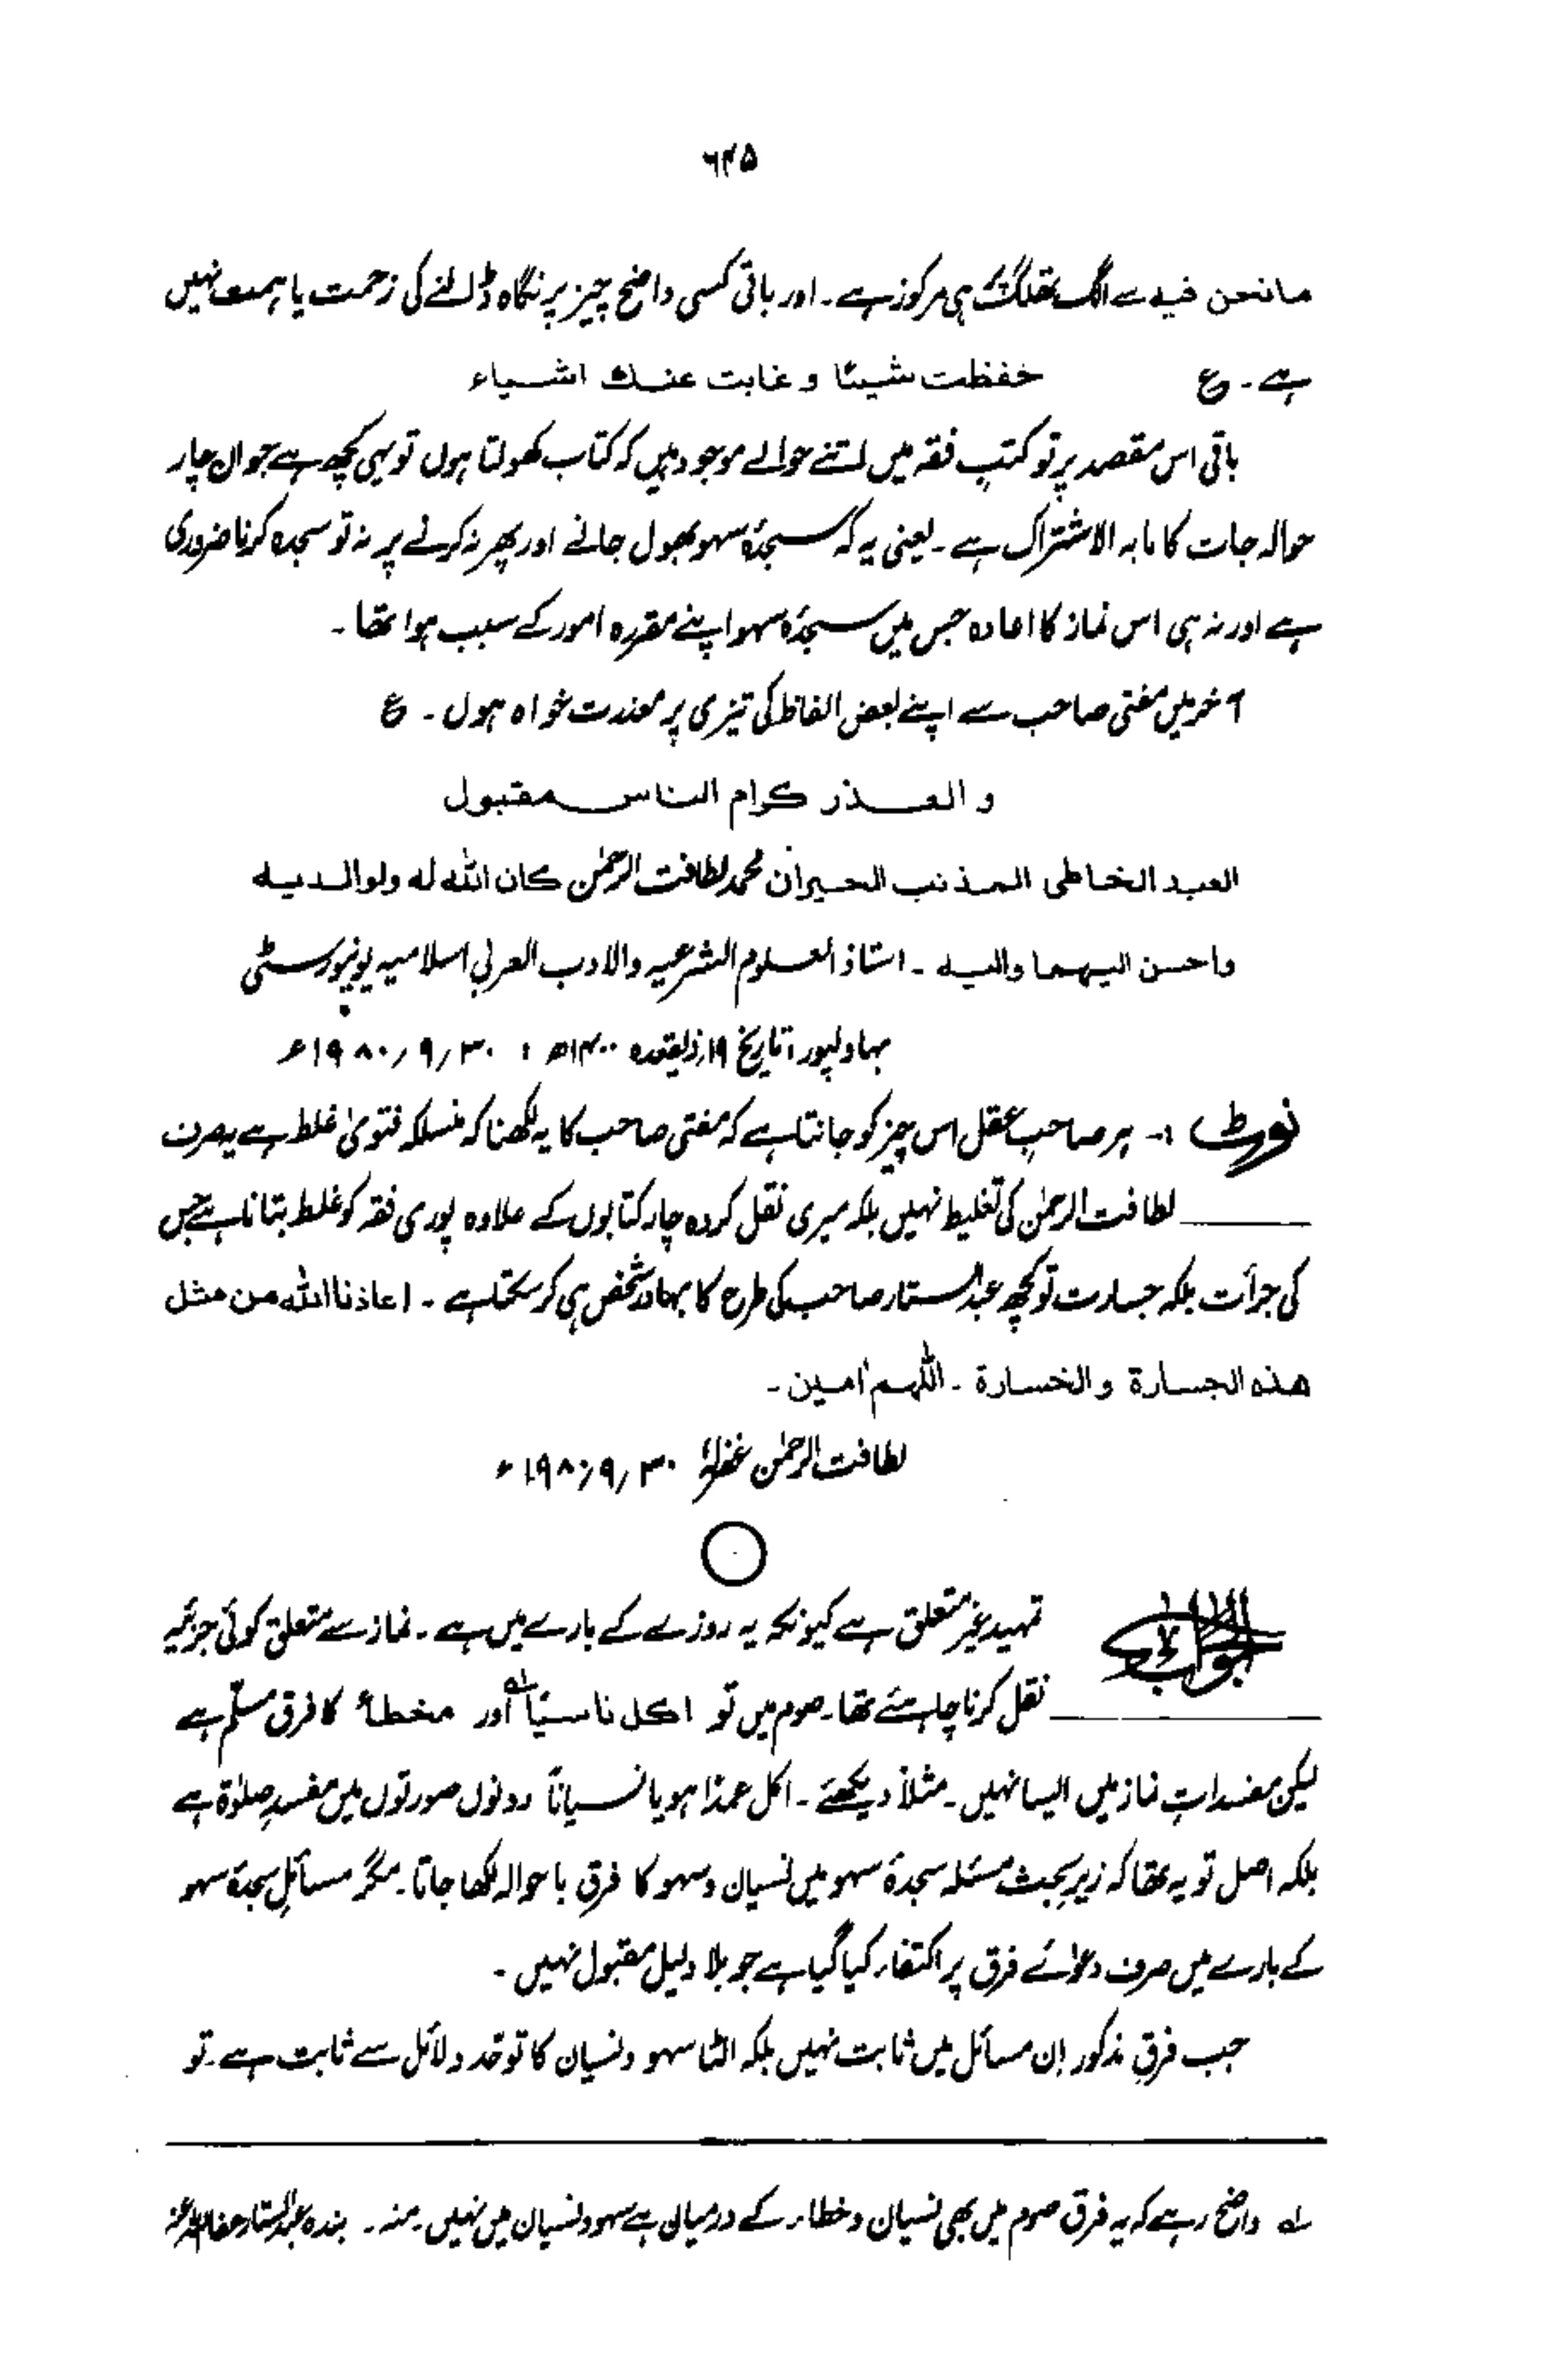 ۶۴۵
ما نحن فیہ سے الگ تھلگ ہی مرکوز ہے ۔ اور باقی کسی واضح چیز پر نگاہ ڈالنے کی زحمت یا ہمت نہیں
ہے ۔ ع حفظت شیئا و غابت عنک اشیاء
باقی اس مقصد پر تو کتبِ فقہ میں اتنے حوالے موجود ہیں کہ کتاب کھولتا ہوں تو یہی کچھ ہے جو ان چار
حوالہ جات کا مابہ الاشتراک ہے ۔ یعنی یہ کہ سجدۂ سہو بھول جانے اور پھر نہ کرنے پر نہ تو سجدہ کرنا ضروری
ہے اور نہ ہی اس نماز کا اعادہ جس میں سجدۂ سہو اپنے مقررہ امور کے سبب ہوا تھا ۔
آخر میں مفتی صاحب سے اپنے بعض الفاظ کی تیزی پر معذرت خواہ ہوں ۔ ع
و العذر کرام الناس مقبول
العبد الخاطی المذنب الحیران محمد لطافت الرحمٰن کان اللہ لہ ولوالدیہ
واحسن الیہما والیہ ۔ استاذ العلوم الشرعیہ والادب العربی اسلامیہ یونیورسٹی
بہاولپور ؛ تاریخ ۱۹ ذیقعدہ ۱۴۰۰ھ ؛ ۳۰ /۹ /۱۹۸۰ء
نوٹ :۔ ہر صاحبِ عقل اس چیز کو جانتا ہے کہ مفتی صاحب کا یہ لکھنا کہ منسلکہ فتویٰ غلط ہے یہ صرف
لطافت الرحمٰن کی تغلیط نہیں بلکہ میری نقل کردہ چار کتابوں کے علاوہ پوری فقہ کو غلط بتانا ہے جس
کی جرأت بلکہ جسارت تو کچھ عبدالستار صاحب کی طرح کا بہادر شخص ہی کر سکتا ہے ۔ اعاذنا اللہ من مثل
ھذہ الجسارۃ والخسارۃ ۔ اللہم اٰمین ۔
لطافت الرحمٰن غفرلہٗ ۳۰ /۹ /۱۹۸۰ء
الجواب تمہید غیر متعلق ہے کیونکہ یہ روزے کے بارے میں ہے ۔ نماز سے متعلق کوئی جزئیہ
نقل کرنا چاہئے تھا ۔ صوم میں تو اکل ناسیًا لہ اور مخطأ کا فرق مسلّم ہے
لیکن مفسداتِ نماز میں ایسا نہیں ۔ مثلاً دیکھئے ۔ اکل عمدًا ہو یا نسیاناً دونوں صورتوں میں مفسدِ صلوٰۃ ہے
بلکہ اصل تو یہ تھا کہ زیرِ بحث مسئلہ سجدۂ سہو میں نسیان و سہو کا فرق با حوالہ لکھا جاتا ۔ مگر مسائلِ سجدۂ سہو
کے بارے میں صرف دعوائے فرق پر اکتفاء کیا گیا ہے جو بلا دلیل مقبول نہیں ۔
جب فرقِ مذکور اِن مسائل میں ثابت نہیں بلکہ الٹا سہو و نسیان کا توحّد دلائل سے ثابت ہے ۔ تو
لہ واضح رہے کہ یہ فرق صوم میں بھی نسیان و خطاء کے درمیان ہے سہو و نسیان میں نہیں ۔ منہ ۔ بندہ عبدالستار عفا اللہ عنہ